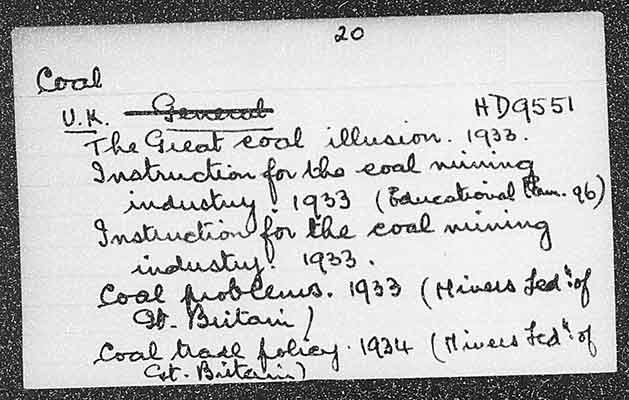 20
Coal
U.K. General HD9551
The Great coal illusion. 1933.
Instruction for the coal mining
industry. 1933 (Educational Pam. 96)
Instruction for the coal mining
industry. 1933.
Coal problems. 1933 (Miners Fedn. of
Gt. Britain)
Coal trade policy. 1934 (Miners Fedn. of
Gt. Britain)